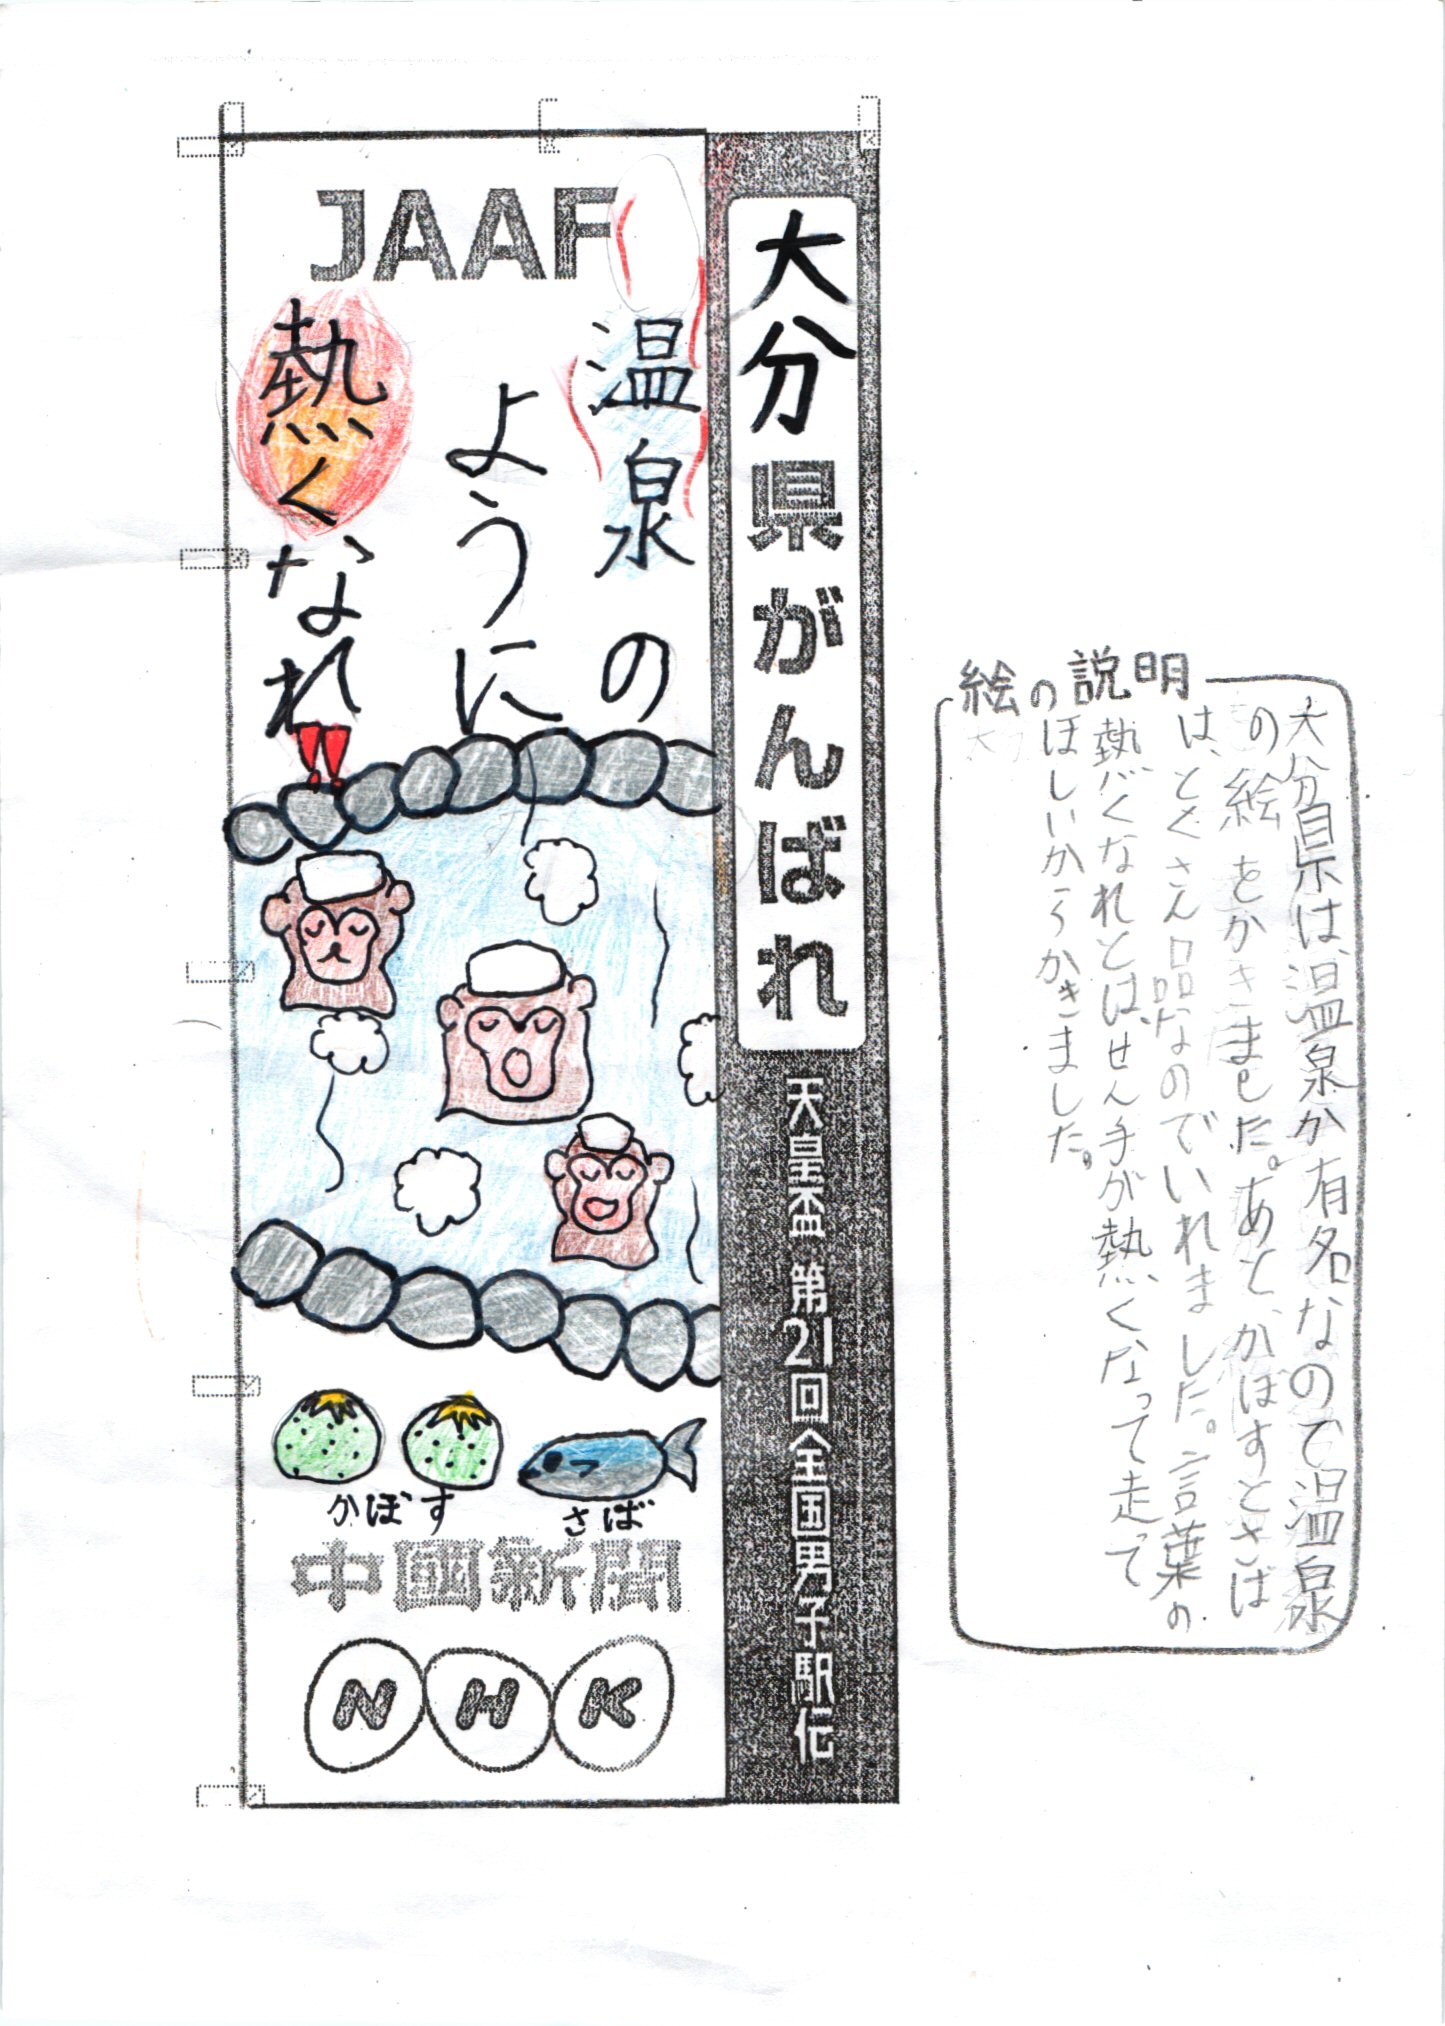 JAAF
大分県がんばれ
天皇盃 第21回全国男子駅伝
温泉の
ように
熱くなれ!!
かぼす
さば
中國新聞
NHK
絵の説明
大分県は、温泉が有名なので温泉
の絵をかきました。あと、かぼすとさば
は、とくさん品なのでいれました。言葉の
熱くなれとは、せん手が熱くなって走って
ほしいからかきました。